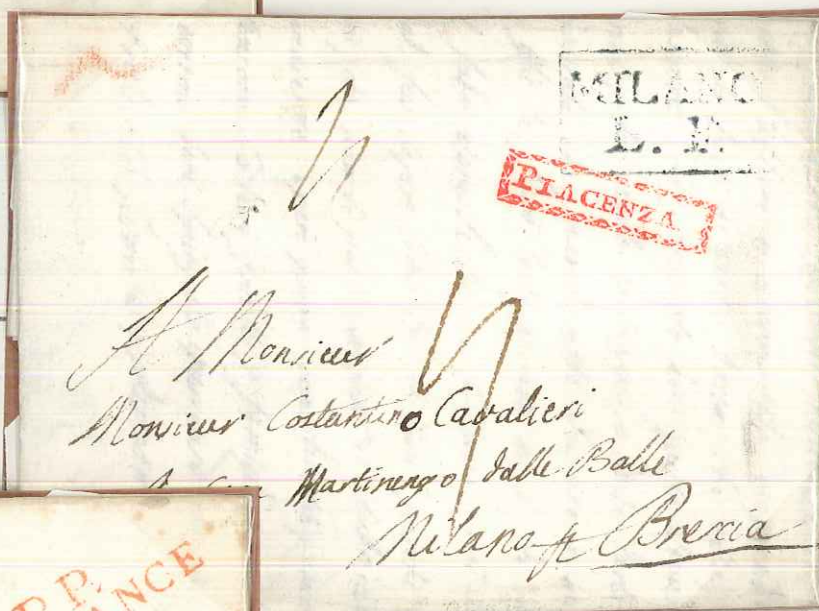 MILANO
L. F.
PIACENZA
A Monsieur
Monsieur Costantino Cavalieri
Martinengo dalle Balle
Milano ft Brexia
P.P.
ANCE